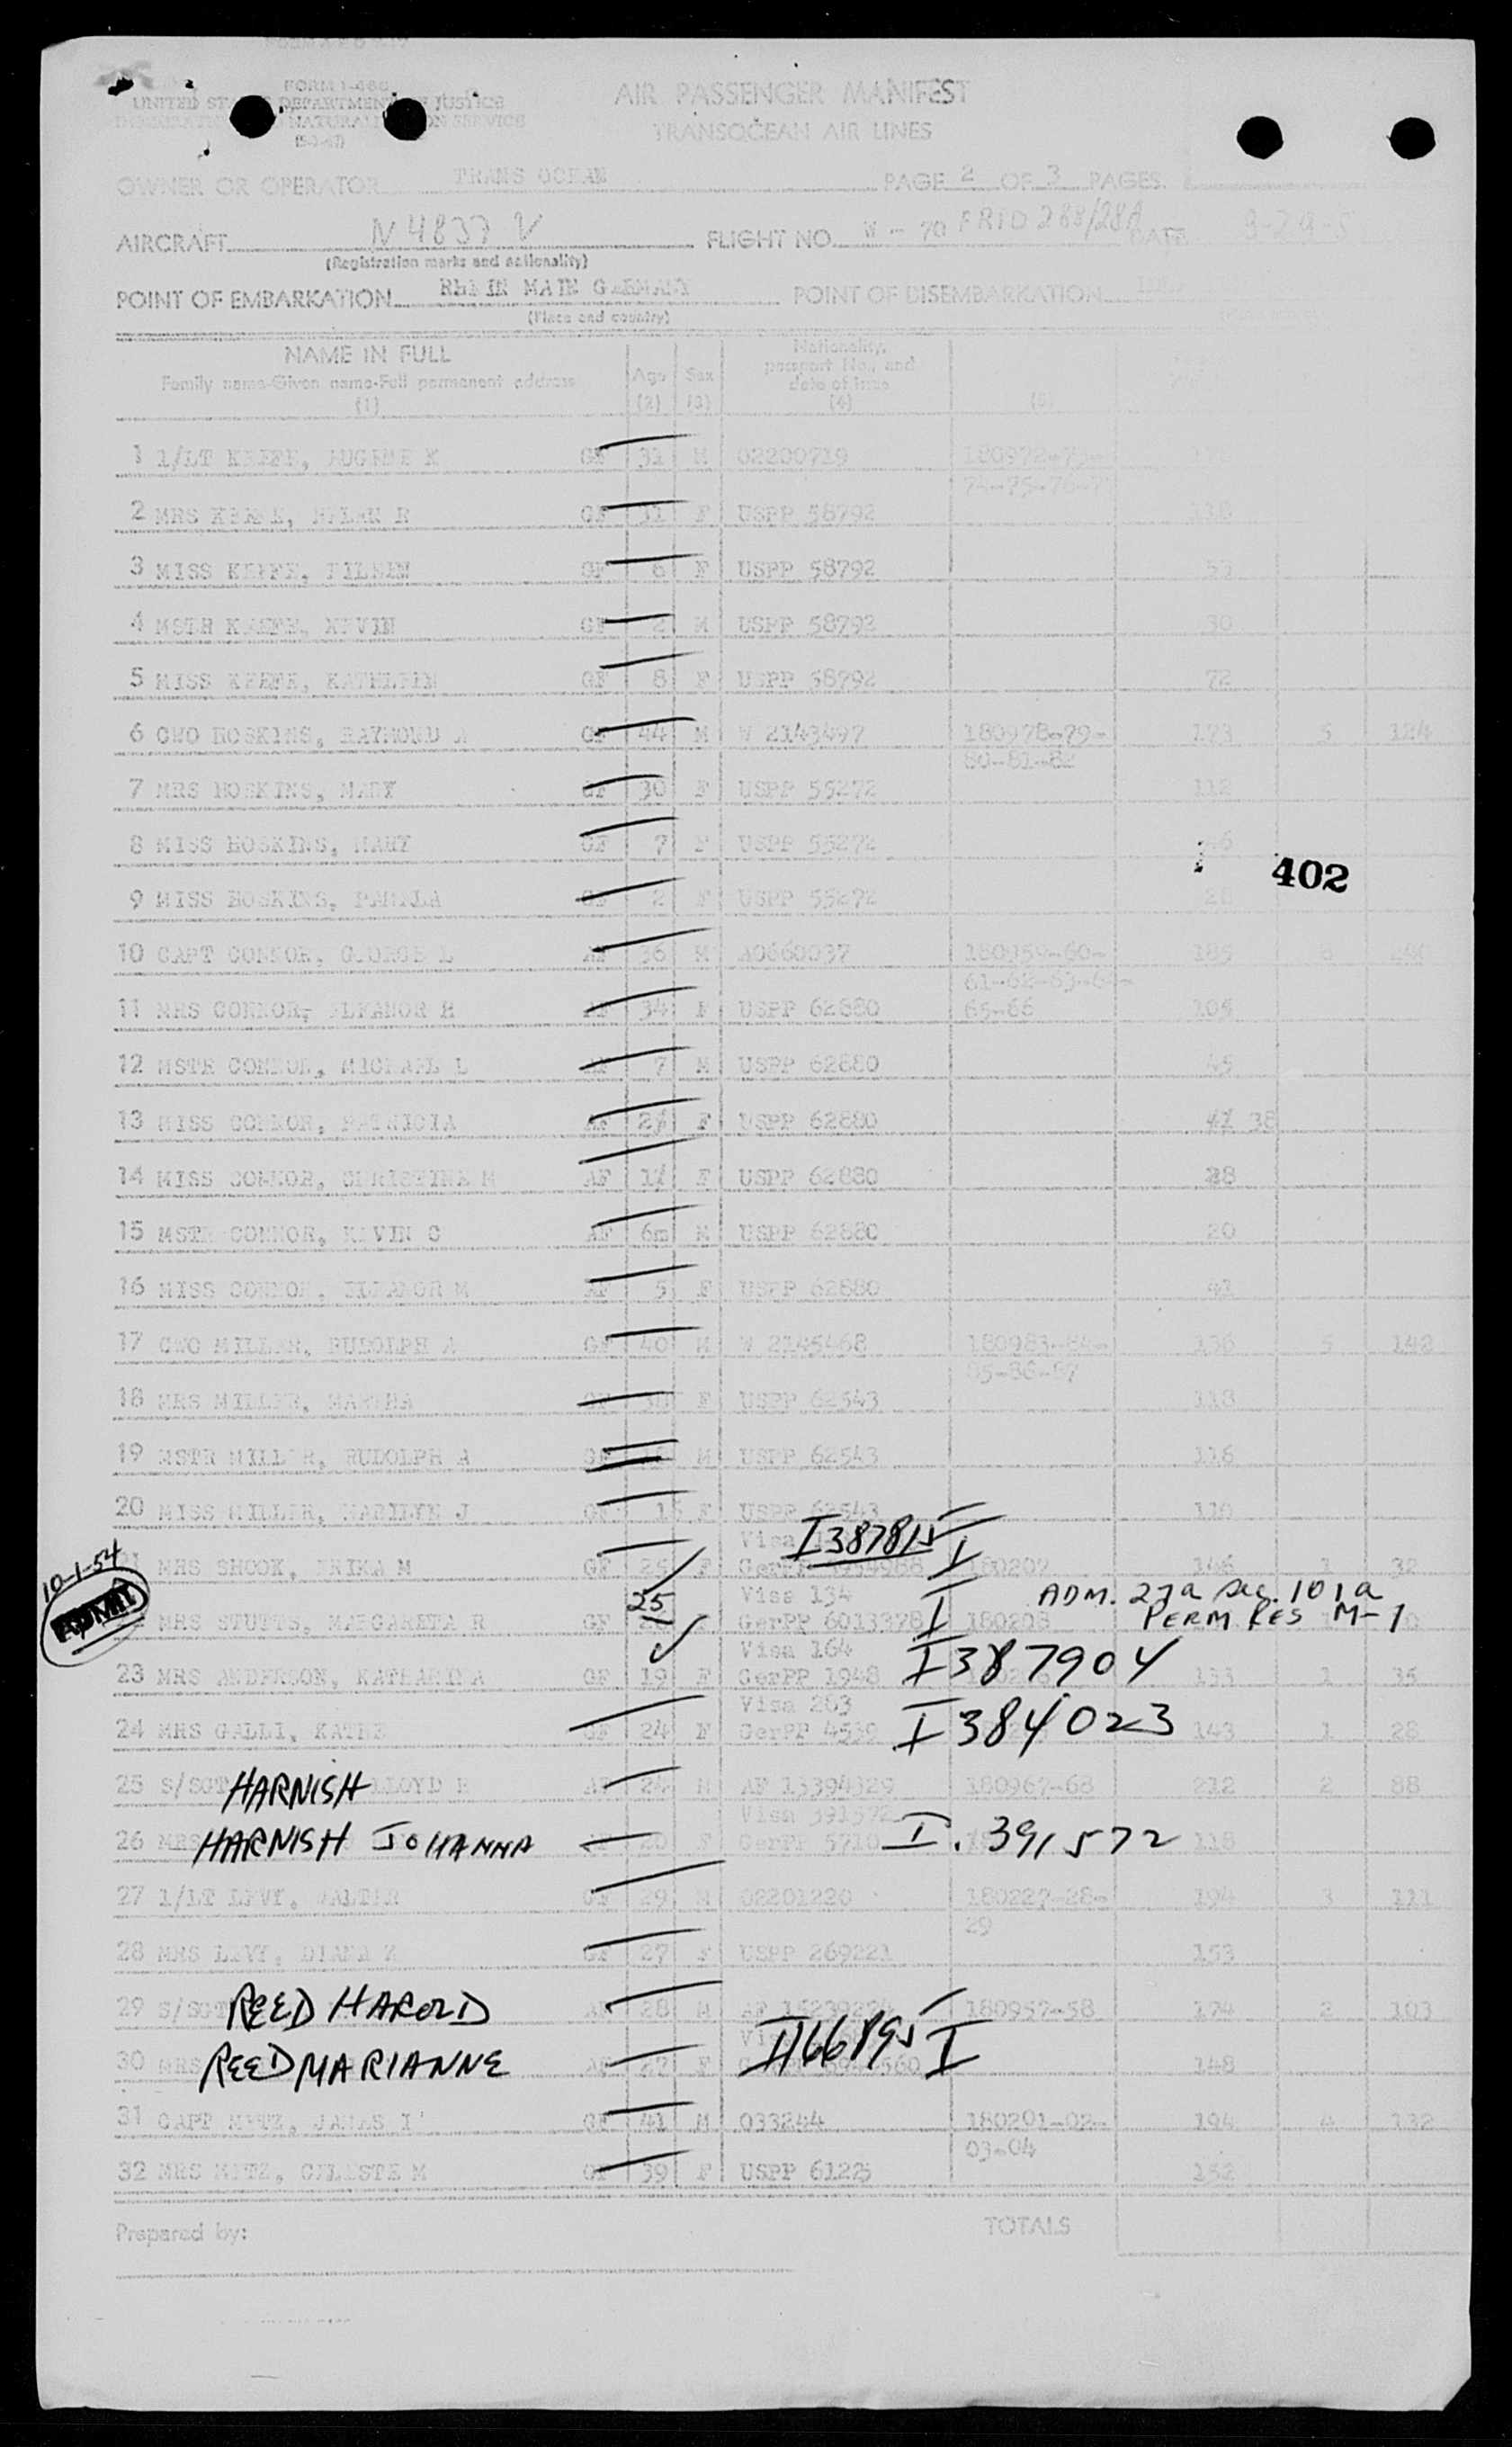 FORM I-466
UNITED STATES DEPARTMENT OF JUSTICE
IMMIGRATION AND NATURALIZATION SERVICE
AIR PASSENGER MANIFEST
TRANSOCEAN AIR LINES
OWNER OR OPERATOR TRANS OCEAN PAGE 2 OF 3 PAGES
AIRCRAFT N4837V FLIGHT NO. W - 70 FRID 288/28A DATE 9-29-5
(Registration marks and nationality)
POINT OF EMBARKATION RHEIN MAIN GERMANY POINT OF DISEMBARKATION
(Place and country)
NAME IN FULL
Family name-Given name-Full permanent address
(1)
Age (2) Sex (3)
Nationality, passport No., and date of issue (4)
(5)
1 1/LT KEEFE, EUGENE K GF 31 M 02200719 180972-73-
74-75-76-7
2 MRS KEEFE, HELEN R GF 31 F USPP 58792 118
3 MISS KEEFE, EILEEN GF 6 F USPP 58792 53
4 MSTR KEEFE, KEVIN GF 2 M USPP 58792 30
5 MISS KEEFE, KATHLEEN GF 8 F USPP 58792 72
6 CWO HOSKINS, RAYMOND GF 44 M W 2143497 180978-79- 173 5 124
80-81-82
7 MRS HOSKINS, MARY GF 30 F USPP 55272 112
8 MISS HOSKINS, MARY GF 7 F USPP 55272 46
402
9 MISS HOSKINS, PAMELA GF 2 F USPP 55272 28
10 CAPT CONNOR, GEORGE L AF 36 M AO660037 180959-60- 185 8
61-62-63-64-
11 MRS CONNOR, ELEANOR H AF 34 F USPP 62880 65-66 105
12 MSTR CONNOR, MICHAEL L AF 7 M USPP 62880 45
13 MISS CONNOR, PATRICIA AF 2 F USPP 62880 38
14 MISS CONNOR, CHRISTINE M AF 1 F USPP 62880 28
15 MSTR CONNOR, KEVIN C AF 6m M USPP 62880 20
16 MISS CONNOR, ELEANOR M AF 5 F USPP 62880 41
17 CWO MILLER, RUDOLPH A GF 40 M W 2145468 180983-84- 136 5 142
85-86-87
18 MRS MILLER, MARTHA GF 38 F USPP 62543 118
19 MSTR MILLER, RUDOLPH A GF M USPP 62543 116
20 MISS MILLER, MARILYN J GF F USPP 62543 110
Visa I387815 I
MRS SHOOK, ERIKA M GF 25 F GerPP 180207 146 1 32
10-1-54 ADMIT
25 Visa 134 I ADM. 23a sec. 101a
MRS STUTTS, MARGARETA R GF F GerPP 6013378 180208 PERM RES M-1
Visa 164
23 MRS ANDERSON, KATHARINA GF 19 F GerPP 1948 I387904 133 1 35
Visa 203
24 MRS GALLI, KATHE GF 24 F GerPP 4539 I384023 143 1 28
25 S/SGT HARNISH LLOYD E AF 24 M AF 13394329 180967-68 212 2 88
Visa 391572
26 MRS HARNISH JOHANNA AF 20 F GerPP 5710 I. 391572 118
27 1/LT LEVY, WALTER GF 29 M 02201220 180227-28- 194 3 111
29
28 MRS LEVY, DIANA Z GF 27 F USPP 269221 153
29 S/SGT REED HAROLD AF 28 M AF 180957-58 174 2 103
30 MRS REED MARIANNE AF 27 F I166895 I 148
31 CAPT METZ, JAMES I GF 41 M 033244 180201-02- 194 4 132
03-04
32 MRS METZ, CELESTE M GF 39 F USPP 61225 152
Prepared by: TOTALS